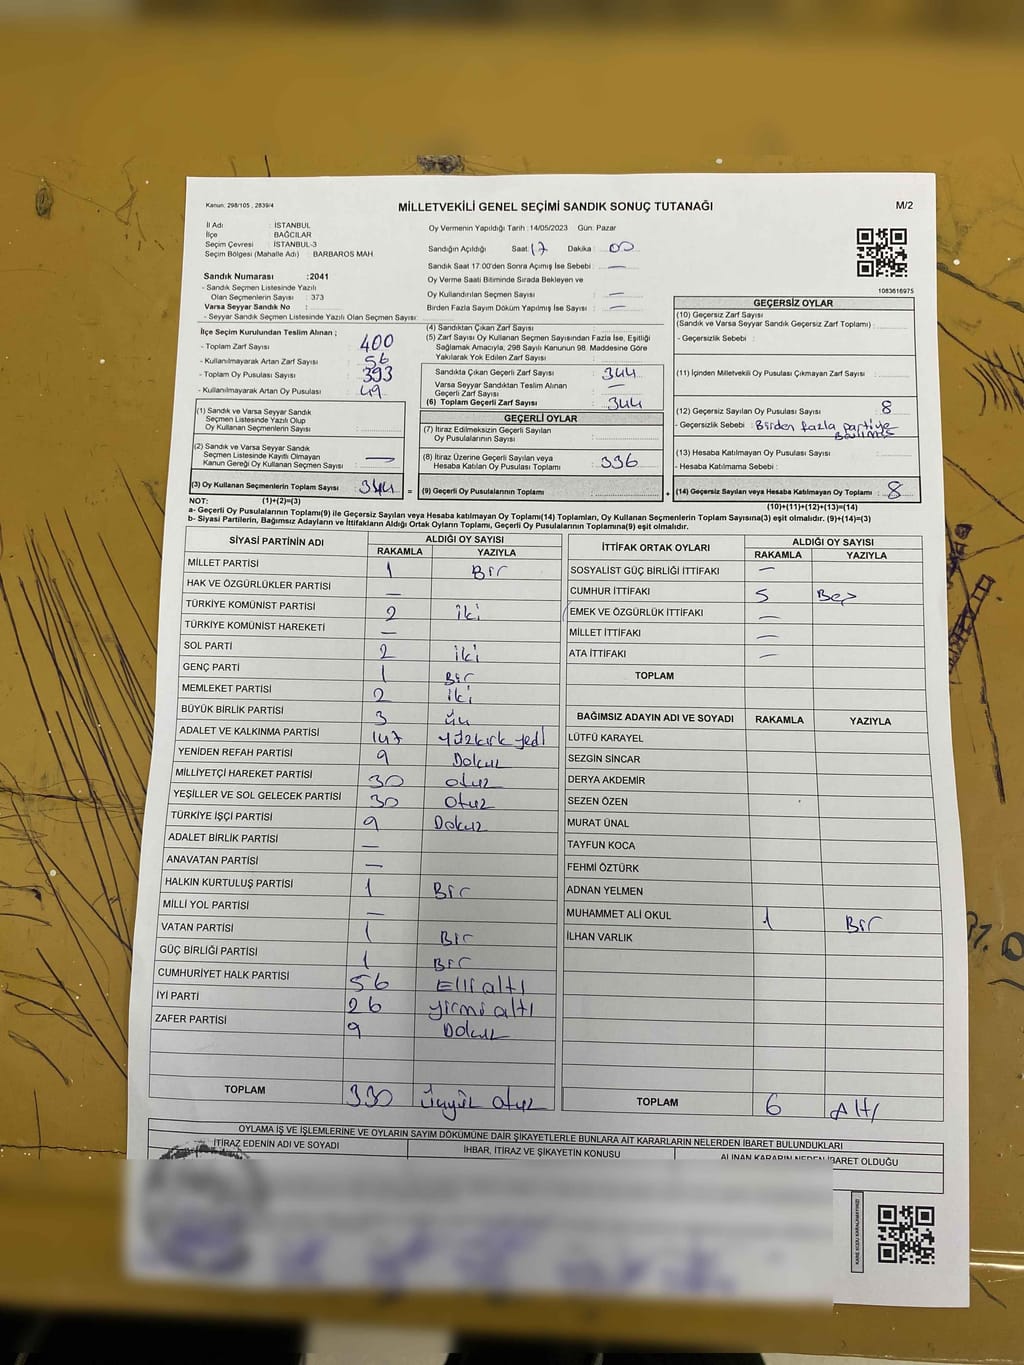 Kanun: 298/105 , 2839/4
MİLLETVEKİLİ GENEL SEÇİMİ SANDIK SONUÇ TUTANAĞI
M/2
İl Adı : İSTANBUL
İlçe : BAĞCILAR
Seçim Çevresi : İSTANBUL-3
Seçim Bölgesi (Mahalle Adı) : BARBAROS MAH.
Sandık Numarası :2041
- Sandık Seçmen Listesinde Yazılı
Olan Seçmenlerin Sayısı : 373
Varsa Seyyar Sandık No :
- Seyyar Sandık Seçmen Listesinde Yazılı Olan Seçmen Sayısı:
Oy Vermenin Yapıldığı Tarih : 14/05/2023 Gün: Pazar
Sandığın Açıldığı Saat: 17 Dakika : 00
Sandık Saat 17:00'den Sonra Açımış İse Sebebi : —
Oy Verme Saati Bitiminde Sırada Bekleyen ve
Oy Kullandırılan Seçmen Sayısı : —
Birden Fazla Sayım Döküm Yapılmış İse Sayısı : —
1083616975
İlçe Seçim Kurulundan Teslim Alınan ;
- Toplam Zarf Sayısı : 400
- Kullanılmayarak Artan Zarf Sayısı : 56
- Toplam Oy Pusulası Sayısı : 393
- Kullanılmayarak Artan Oy Pusulası : 49
(1) Sandık ve Varsa Seyyar Sandık
Seçmen Listesinde Yazılı Olup
Oy Kullanan Seçmenlerin Sayısı :
(2) Sandık ve Varsa Seyyar Sandık
Seçmen Listesinde Kayıtlı Olmayan
Kanun Gereği Oy Kullanan Seçmen Sayısı : —
(3) Oy Kullanan Seçmenlerin Toplam Sayısı : 344 =
(4) Sandıktan Çıkan Zarf Sayısı :
(5) Zarf Sayısı Oy Kullanan Seçmen Sayısından Fazla İse, Eşitliği
Sağlamak Amacıyla, 298 Sayılı Kanunun 98. Maddesine Göre
Yakılarak Yok Edilen Zarf Sayısı :
Sandıkta Çıkan Geçerli Zarf Sayısı : 344
Varsa Seyyar Sandıktan Teslim Alınan
Geçerli Zarf Sayısı : —
(6) Toplam Geçerli Zarf Sayısı : 344
GEÇERLİ OYLAR
(7) İtiraz Edilmeksizin Geçerli Sayılan
Oy Pusulalarının Sayısı :
(8) İtiraz Üzerine Geçerli Sayılan veya
Hesaba Katılan Oy Pusulası Toplamı : 336
(9) Geçerli Oy Pusulalarının Toplamı : +
GEÇERSİZ OYLAR
(10) Geçersiz Zarf Sayısı
(Sandık ve Varsa Seyyar Sandık Geçersiz Zarf Toplamı) :
- Geçersizlik Sebebi :
(11) İçinden Milletvekili Oy Pusulası Çıkmayan Zarf Sayısı :
(12) Geçersiz Sayılan Oy Pusulası Sayısı : 8
- Geçersizlik Sebebi : Birden fazla partiye
(13) Hesaba Katılmayan Oy Pusulası Sayısı :
- Hesaba Katılmama Sebebi :
(14) Geçersiz Sayılan veya Hesaba Katılmayan Oy Toplamı : 8
NOT: (1)+(2)=(3)
(10)+(11)+(12)+(13)=(14)
a- Geçerli Oy Pusulaları Toplamı(9) ile Geçersiz Sayılan veya Hesaba Katılmayan Oy Toplamı(14) Toplamları, Oy Kullanan Seçmenlerin Toplam Sayısına(3) eşit olmalıdır. (9)+(14)=(3)
b- Siyasi Partilerin, Bağımsız Adayların ve İttifakların Aldığı Ortak Oyların Toplamı, Geçerli Oy Pusulalarının Toplamına(9) eşit olmalıdır.
SİYASİ PARTİNİN ADI ALDIĞI OY SAYISI
RAKAMLA YAZIYLA
MİLLET PARTİSİ 1 Bir
HAK VE ÖZGÜRLÜKLER PARTİSİ —
TÜRKİYE KOMÜNİST PARTİSİ 2 iki
TÜRKİYE KOMÜNİST HAREKETİ —
SOL PARTİ 2 iki
GENÇ PARTİ 1 Bir
MEMLEKET PARTİSİ 2 iki
BÜYÜK BİRLİK PARTİSİ 3 üç
ADALET VE KALKINMA PARTİSİ 147 yüzkırk yedi
YENİDEN REFAH PARTİSİ 9 Dokuz
MİLLİYETÇİ HAREKET PARTİSİ 30 otuz
YEŞİLLER VE SOL GELECEK PARTİSİ 30 otuz
TÜRKİYE İŞÇİ PARTİSİ 9 Dokuz
ADALET BİRLİK PARTİSİ —
ANAVATAN PARTİSİ —
HALKIN KURTULUŞ PARTİSİ 1 Bir
MİLLİ YOL PARTİSİ —
VATAN PARTİSİ 1 Bir
GÜÇ BİRLİĞİ PARTİSİ 1 Bir
CUMHURİYET HALK PARTİSİ 56 Elli altı
İYİ PARTİ 26 yirmi altı
ZAFER PARTİSİ 9 Dokuz
TOPLAM 330 üçyüz otuz
İTTİFAK ORTAK OYLARI ALDIĞI OY SAYISI
RAKAMLA YAZIYLA
SOSYALİST GÜÇ BİRLİĞİ İTTİFAKI —
CUMHUR İTTİFAKI 5 Beş
EMEK VE ÖZGÜRLÜK İTTİFAKI —
MİLLET İTTİFAKI —
ATA İTTİFAKI —
TOPLAM
BAĞIMSIZ ADAYIN ADI VE SOYADI RAKAMLA YAZIYLA
LÜTFÜ KARAYEL
SEZGİN SİNCAR
DERYA AKDEMİR
SEZEN ÖZEN
MURAT ÜNAL
TAYFUN KOCA
FEHMİ ÖZTÜRK
ADNAN YELMEN
MUHAMMET ALİ OKUL 1 Bir
İLHAN VARLIK
TOPLAM 6 Altı
OYLAMA İŞ VE İŞLEMLERİNE VE OYLARIN SAYIM DÖKÜMÜNE DAİR ŞİKAYETLERLE BUNLARA AİT KARARLARIN NELERDEN İBARET BULUNDUKLARI
İTİRAZ EDENİN ADI VE SOYADI
İHBAR, İTİRAZ VE ŞİKAYETİN KONUSU
ALINAN KARARIN NEDEN İBARET OLDUĞU